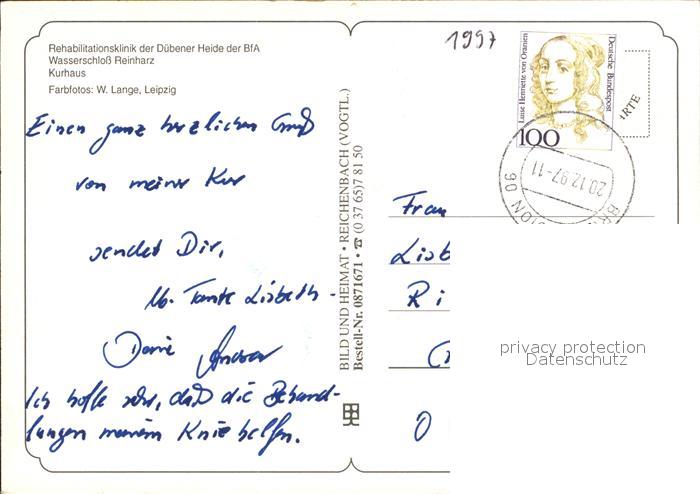 Rehabilitationsklinik der Dübener Heide der BfA
Wasserschloß Reinharz
Kurhaus
Farbfotos: W. Lange, Leipzig
Einen ganz herzlichen Gruß
von meiner Kur
sendet Dir,
lb. Tante Lisbeth -
Deine Andrea
Ich hoffe sehr, daß die Behand-
lungen meinem Knie helfen.
BILD UND HEIMAT • REICHENBACH (VOGTL.)
Bestell-Nr. 0871671 • ☎ (0 37 65) 7 81 50
1997
Luise Henriette von Oranien
Deutsche Bundespost
100
ARTE
20.12.97-11
90
Frau
Lisb
Ri
O
privacy protection
Datenschutz